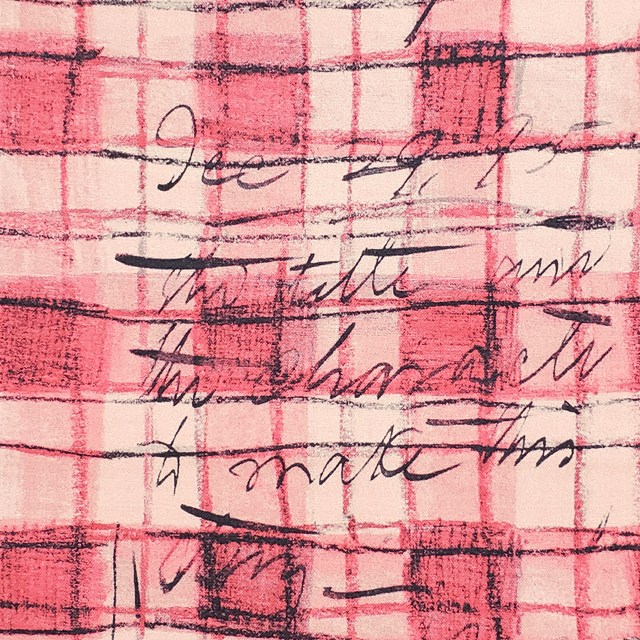 Dec 29, 95
the title and
the characte
to make this